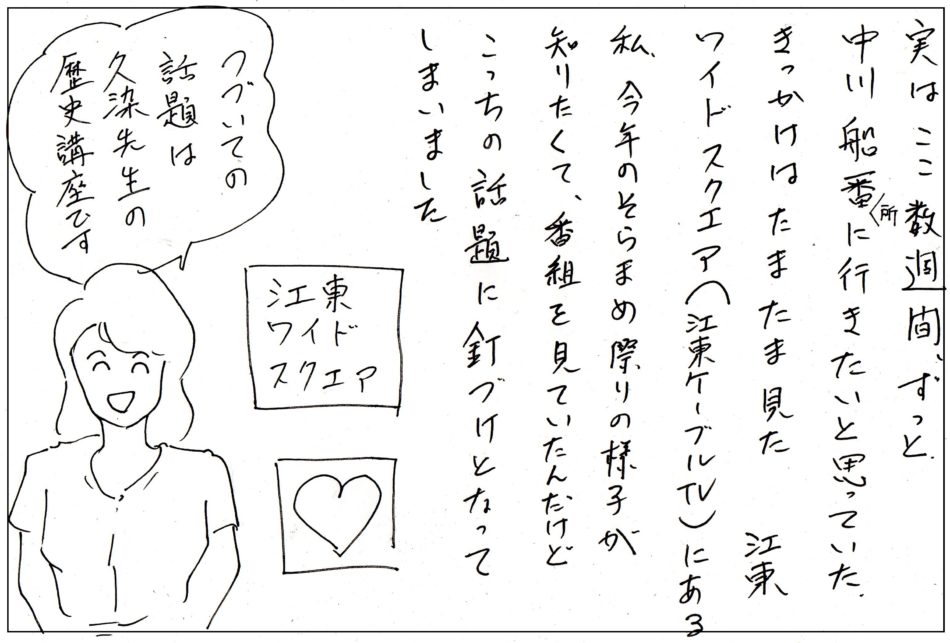 実はここ数週間、ずっと
中川船番所に行きたいと思っていた.
きっかけはたまたま見た 江東
ワイドスクエア(江東ケーブルTV)にある
私、今年のそらまめ際りの様子が
知りたくて、番組を見ていたんだけど
こっちの話題に釘づけとなって
しまいました
つづいての
話題は
久染先生の
歴史講座です
江東
ワイド
スクエア